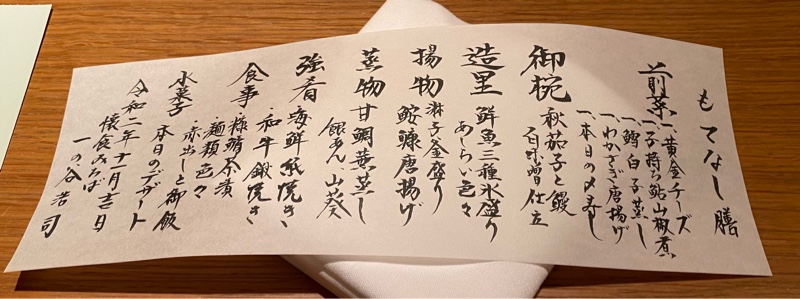 もてなし膳
前菜 一、黄金チーズ
一、子持ち鮎山椒煮
一、鱈白子蒸し
一、わかさぎ唐揚げ
一、本日の〆寿し
御椀 秋茄子と鰻
白味噌仕立
造里 鮮魚三種氷盛り
あしらい色々
揚物 釜盛り
鮟鱇唐揚げ
蒸物 甘鯛蕪蒸し
銀あん、山葵
強肴 海鮮紙焼き
和牛鍬焼き
食事 鯖茶漬
麺類色々
赤出しと御飯
水菓子 本日のデザート
令和二年十月吉日
懐食みちば
一の谷浩司